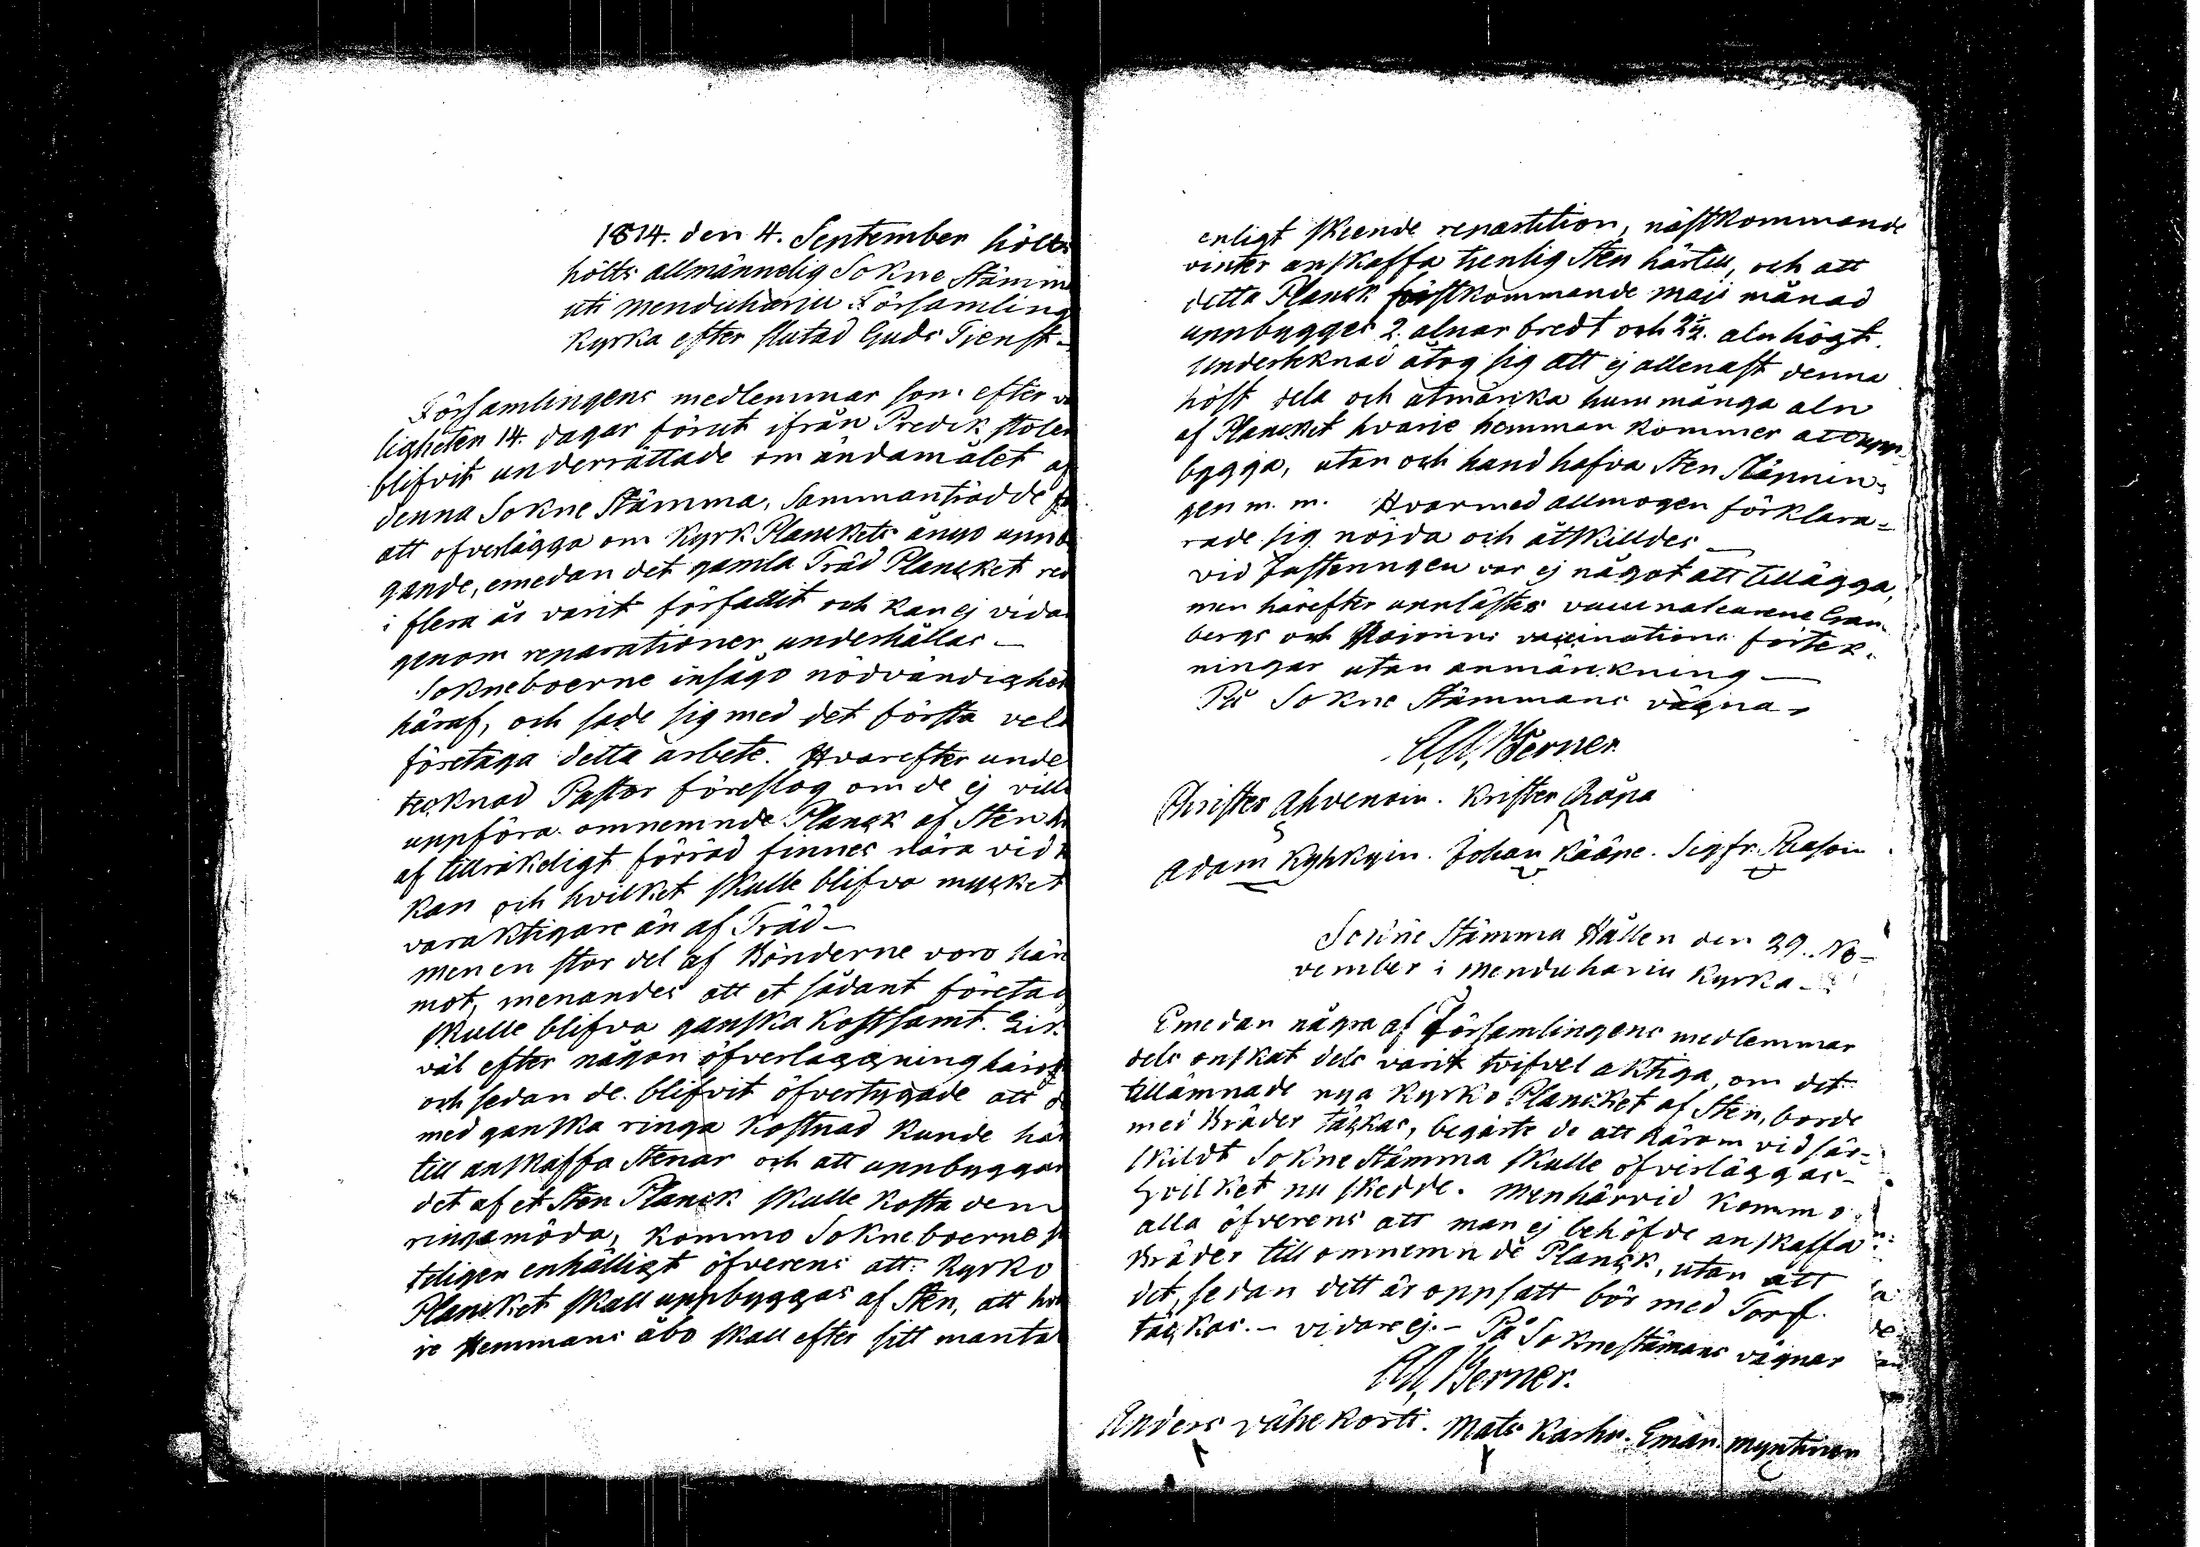 1814. den 4. September hölts
hölts allmännelig Sokne Stämm
uti Menduharju Församling
Kyrka efter slutad Guds Tienst-
Församlingens medlemmar som efter
ligheten 14. dagar förut ifrån Predik stolen
blifvit underrättade om ändamålet af
denna Sokne Stämma, Sammanträdde
att öfverlägga om Kyrk Planckets ånyo uppb
gande, emedan det gamla Träd Plancket re
i flera år varit förfallit och kan ej vida
genom reparationer underhållas-
Sokneboerne insågo nödvändighet
häraf, och sade sig med det första vel
företaga detta arbete. Hvarefter unde
tecknad Pastor föreslog om de ej vill
uppföra omnemnde Planck af Sten
af tillräkeligt förråd finnes nära vid
kan och hvilket skulle blifva mycket
varaktigare än af Träd-
men en stor del af Bönderne voro här
mot, menandes att et sådant företag
skulle blifva ganska kostsamt. Lik
väl efter någon öfverläggning häröf
och sedan de blifvit öfvertygade att d
med ganska ringa kostnad kunde här
till anskaffa Stenar och att uppbyggan
det af et Sten Planck skulle kosta dem
ringa möda, kommo Sokneboerne
teligen enhälligt öfverens att Kyrko
Plancket skall uppbyggas af Sten, att hva
je Hemmans åbo skall efter sitt manta
enligt skeende repartition, nästkommande
vinter anskaffa tienlig Sten härtill, och att
detta Planck förstkommande Maji månad
uppbygges 2. alnar bredt och 2½. aln högt.
Undertecknad åtog sig att ej allenast denna
höst dela och utmärka huru många aln
af Plancket hvarje hemman kommer att upp-
bygga, utan och hand hafva Sten
gen m. m. Hvarmed allmogen förkla­ra=
rade sig nöjda och åtskilldes-
vid Justeringen var ej något att tillägga,
men härefter upplästes Gran
bergs och vaccinations förtek-
ningar utan anmärkning-
På Sokne Stämmans vägnar
Werner.
Christer Ahvenain. Krister Räpä
Adam Kyhkyin. Johan Kääpe. Sigfr.
Sokne Stämma Hållen den 29. No-
vember i Menduharju Kyrka-
Emedan några af Församlingens medlemmar
dels önskat dels varit tvifvel aktiga, om det
tillämnade nya Kyrko Plancket af Sten, borde
med Bräder täckas, begärte de att härom vid sär-
skildt Sokne Stämma skulle öfverläggas-
Hvilket nu skedde. Men härvid kommo
alla öfverens att man ej behöfde anskaffa
Bräder till omnemnde Planck, utan att
det, sedan dett är oppsatt bör med Torf
täckas.- vidare ej.- På Soknestämans vägnar
Werner.
Anders Vähekorti. Mats Karhu. Eman. Myntinen